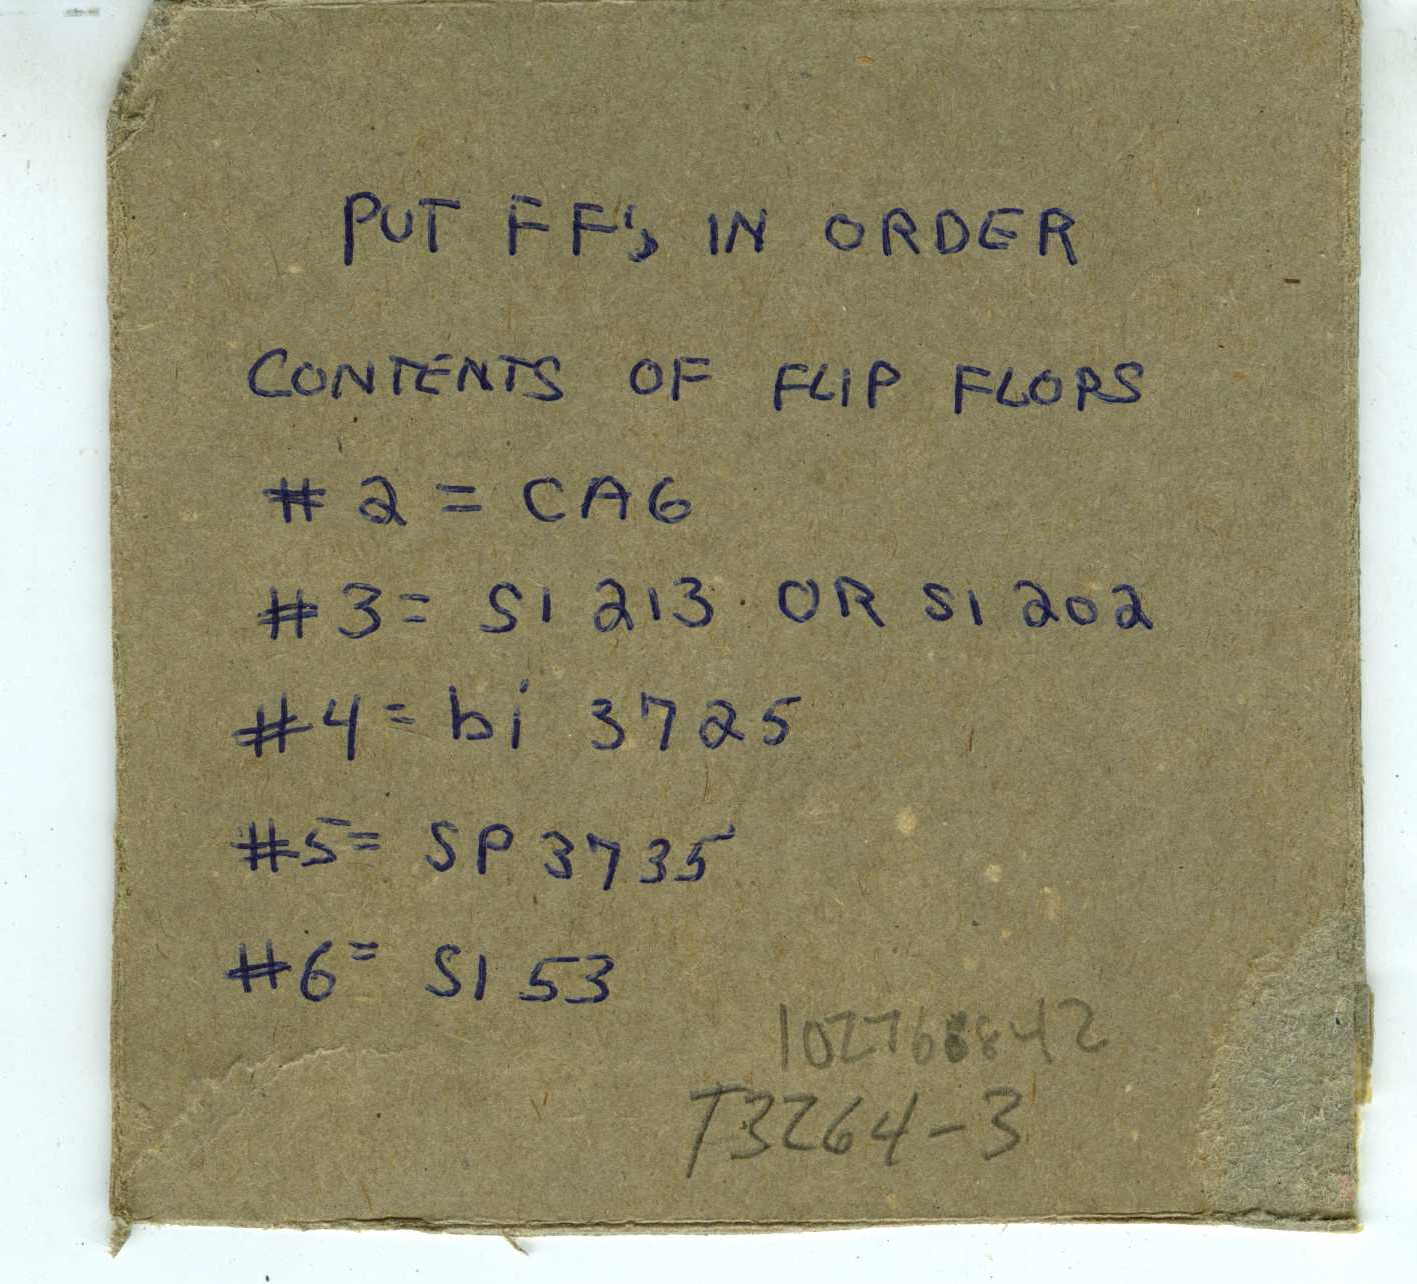 PUT FF's IN ORDER
CONTENTS OF FLIP FLOPS
# 2 = CA6
#3 = SI 213 OR SI 202
#4 = bi 3725
#5 = SP 3735
#6 = SI 53
102768842
T3264-3